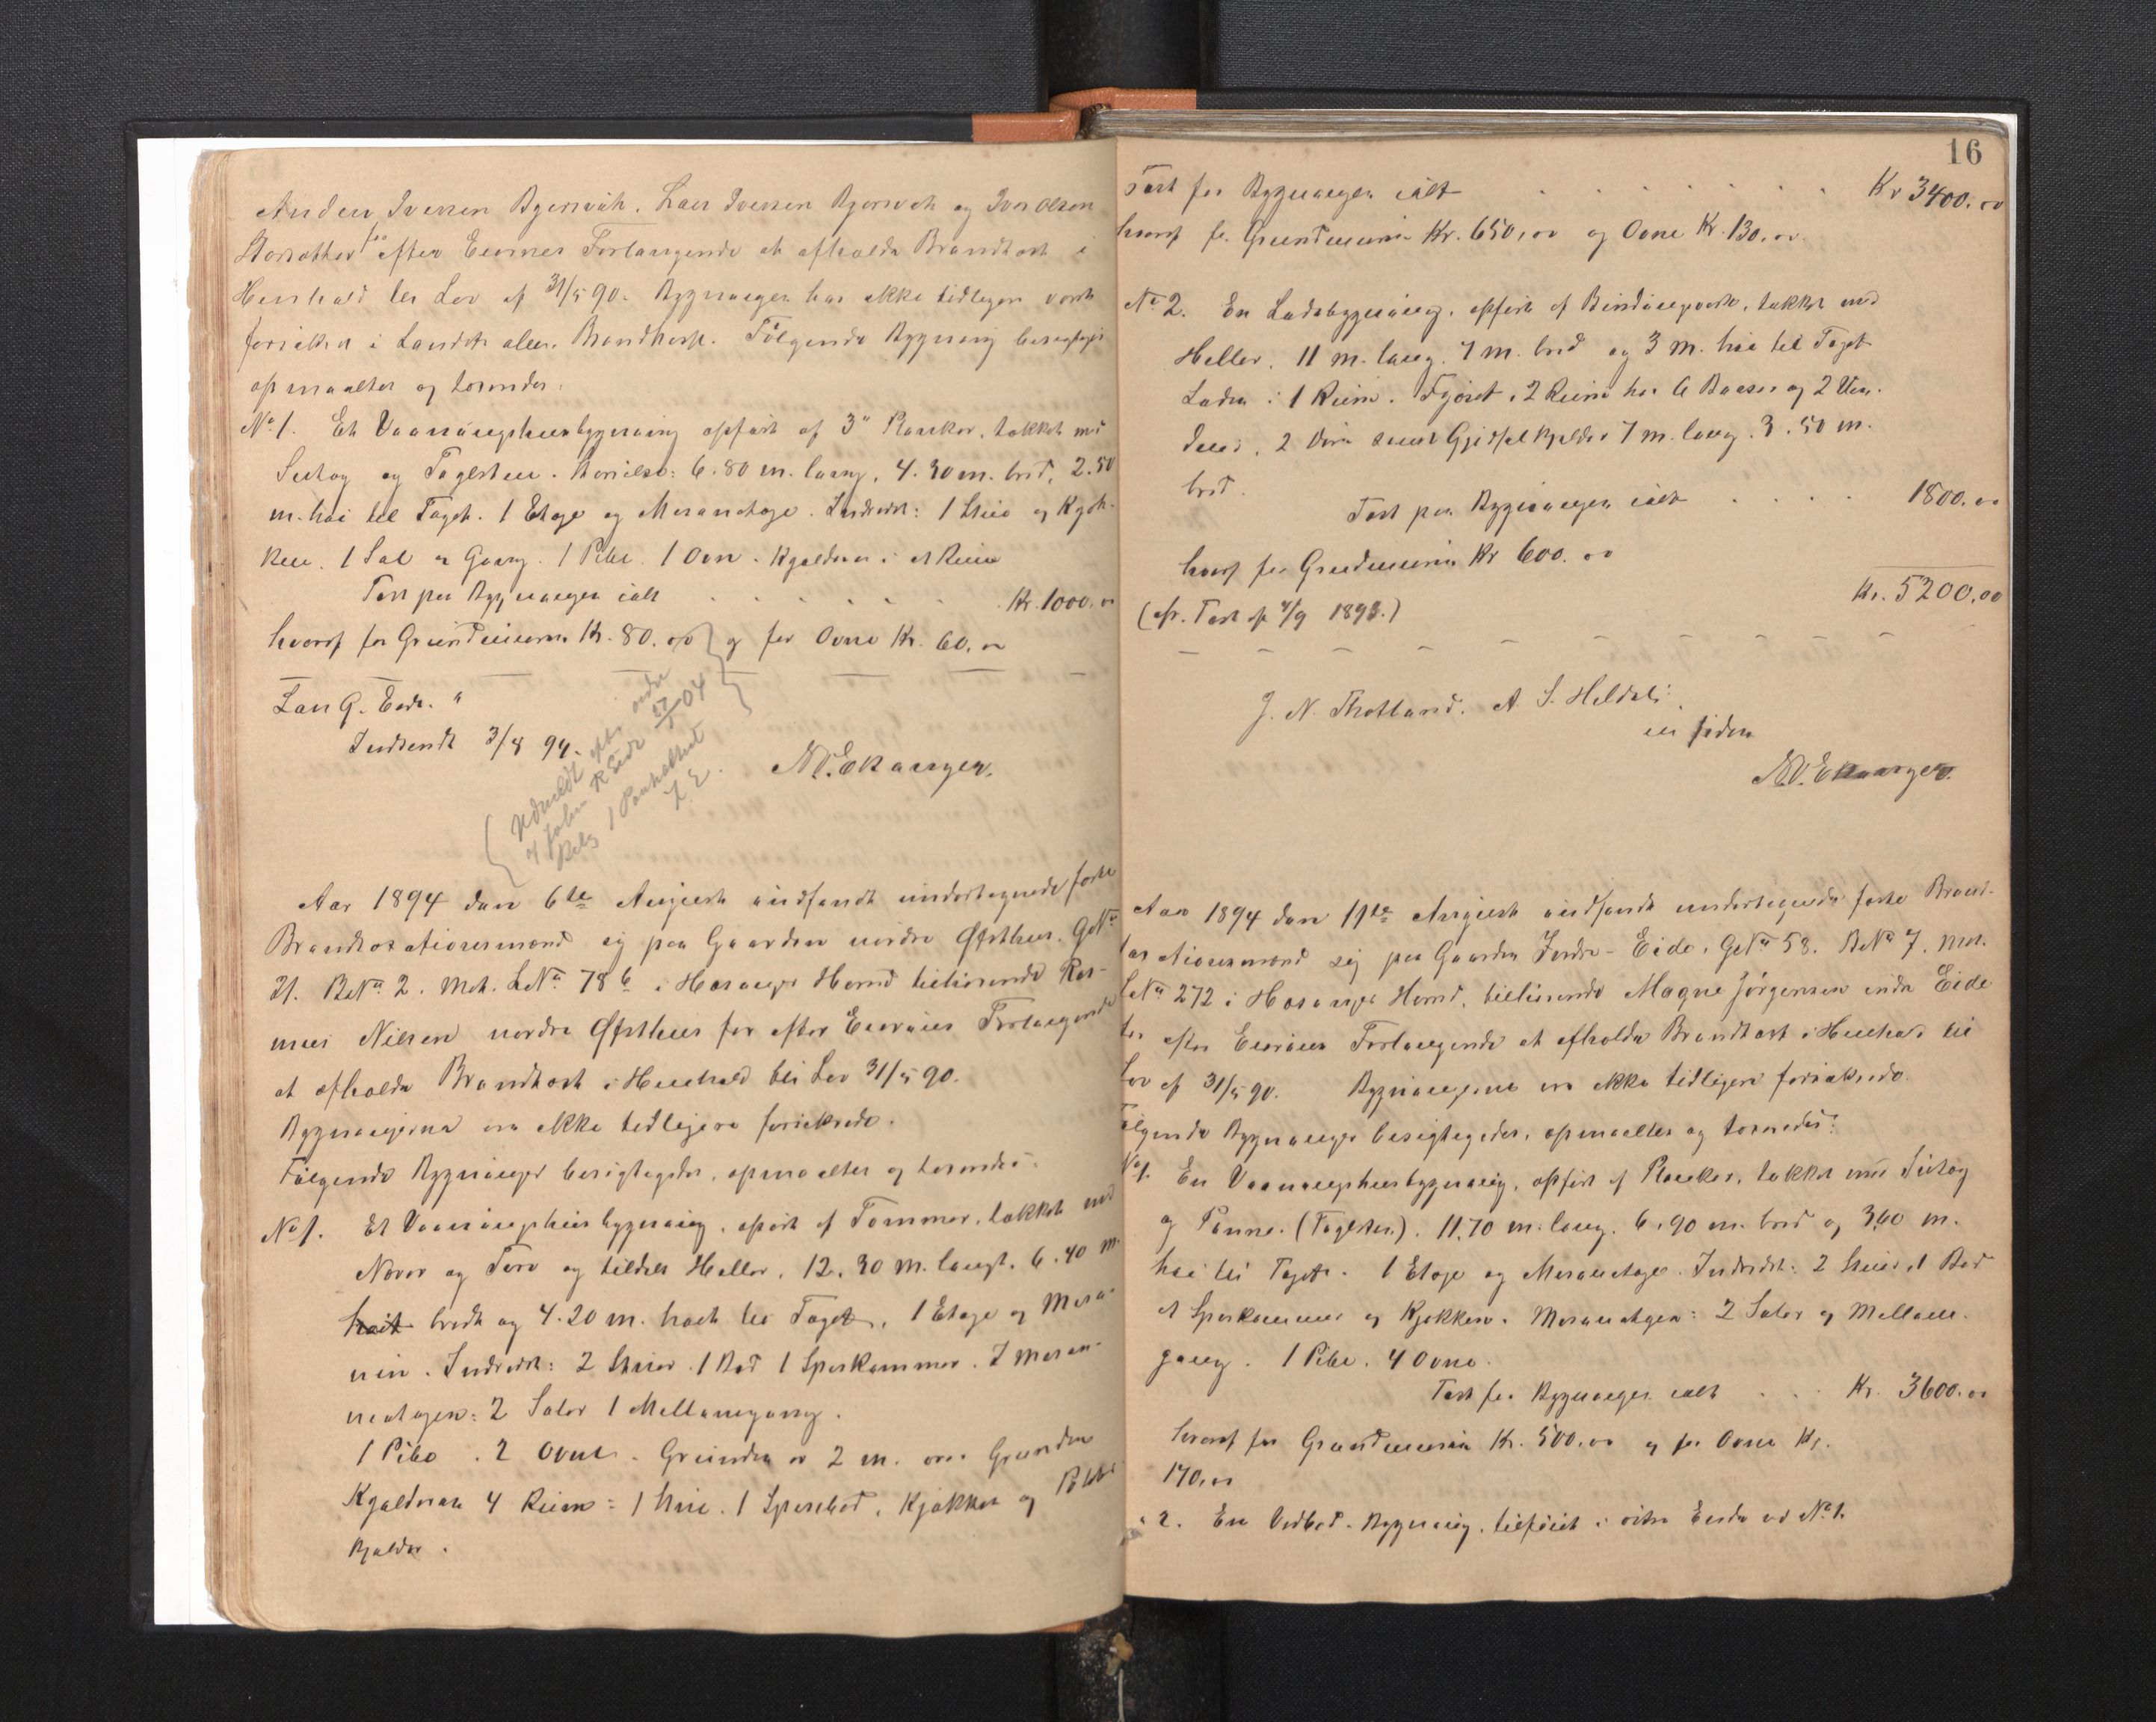 Anders Iversen Bjersvik. Lars Iversen Bjersvik og Iver Olsen
for efter Eiernes Forlangende at afholde Brandtaxt i
Henhold til Lov af 31/5 90. Bygningen har ikke tidligere vært
forsikret i Landets alm. Brandkasse. Følgende Bygning besigtiges
opmaaltes og taxeredes:
No 1. Et Vaaningshusbygning opført af 3" Planker, takket med
Sutag og Taglsten. Størrelse: 6.80 m. lang, 4.30 m. bred, 2.50
m. høi til Taget. 1 Etage og Mesanetage. Indredet: 1 Stue og Kjøk-
ken. 1 Sal og Gang. 1 Pibe. 1 Ovn. Kjælderen i et Rum
Taxt paa Bygningen ialt . . . . . . Kr. 1000.00
hvoraf for Grundmuren Kr. 80.00 og for Ovne Kr. 60.00
Lars G. Eide. "
Indsendt 3/8 94.
N. Ekanger.
Udmeldt efter
af John R Eide 27/5 04
Z. E.
Aar 1894 den 6te August indfandt undertegnede faste
Brandtaxationsmænd sig paa Gaarden nordre Øpsthus. GNo
21. BNo 2. Mat. LNo 78b i Hosanger Herred tilhørende Ras-
mus Nilsen nordre Øpsthus for efter Eierens Forlangende
at afholde Brandtaxt i Henhold til Lov 31/5 90.
Bygningerne er ikke tidligere forsikrede.
Følgende Bygninger besigtigedes, opmaaltes og taxeredes:
No 1. Et Vaaningshusbygning, opført af Tømmer, takket med
Næver og Torv og tildels Heller, 12.30 m. langt. 6.40 m.
høit bredt og 4.20 m. høit til Taget, 1 Etage og Mesa-
nin. Indredet: 2 Stuer. 1 Bod 1 Spiskammer. I Mesan-
netagen: 2 Saler 1 Mellemgang.
1 Pibe . 2 Ovne . Grunden er 2 m. over Grunden
Kjælderen 4 Rum: 1 Stue. 1 Spisebod, Kjøkken og Potet-
kjælder.
16
Taxt for Bygningen ialt . . . . . . . Kr 3400.00
hvoraf for Grundmuren Kr. 650,00 og Ovne Kr. 130,00.
No 2. En Ladebygning, opført af Bindingsverk, takket med
Heller. 11 m. lang. 7 m. bred og 3 m. høi til Taget
Laden i 1 Rum. Fjøset i 2 Rum har 6 Baaser og 2
2 samt Gjødselkjelder 7 m. lang. 3.50 m.
bred.
Taxt paa Bygningen ialt . . . . 1800.00
hvoraf for Grundmuren Kr 600.00
Kr. 5200,00
(cfr. Taxt af 4/9 1893.)
J. N. Thotland. A. S. Heldal
N. Ekanger.
Aar 1894 den 11te August indfandt undertegnede faste Brand-
taxationsmænd sig paa Gaarden Indre-Eide. GNo 58. BNo 7. Mat.
LNo 272 i Hosanger Herred, tilhørende Magne Jørgensen indre Eide
for efter Eierens Forlangende at afholde Brandtaxt i Henhold til
Lov af 31/5 90. Bygningerne er ikke tidligere forsikrede.
Følgende Bygninger besigtigedes, opmaaltes og taxeredes:
No 1. En Vaaningshusbygning, opført af Planker, takket med Sutag
og Panne. (Taglsten). 11.70 m. lang. 6.90 m. bred og 3.60 m.
høi til Taget. 1 Etage og Mesanetage. Indredet: 2 Stuer, 1 Bod
et Spiskammer og Kjøkken. Mesanetagen: 2 Saler og Mellem-
gang. 1 Pibe. 4 Ovne.
Taxt for Bygningen ialt . . . Kr. 3600.00
hvoraf for Grundmuren Kr. 500.00 og for Ovne Kr.
170,00
" 2. En Vedbod-Bygning, tilføiet i østre Ende ved No 1.